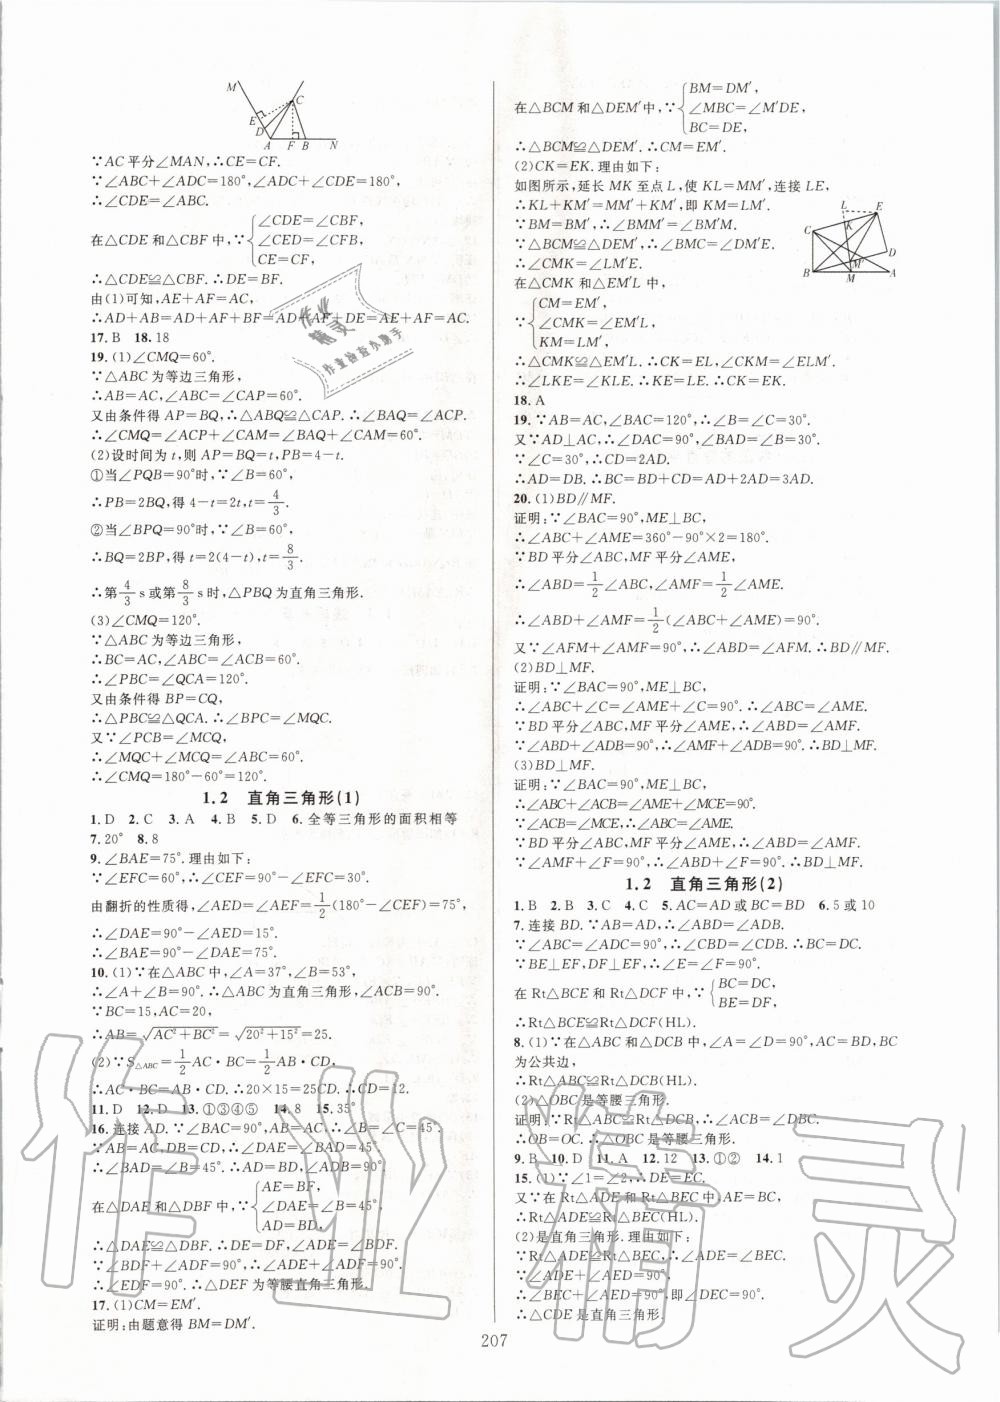 M
C
E
D
A F B N
∵AC平分∠MAN,∴CE=CF.
∵∠ABC+∠ADC=180°,∠ADC+∠CDE=180°,
∴∠CDE=∠ABC.
在△CDE和△CBF中,∵{∠CDE=∠CBF,
∠CED=∠CFB
CE=CF,
∴△CDE≌△CBF.∴DE=BF.
由(1)可知,AE+AF=AC,
∴AD+AB=AD+AF+BF=AD+AF+DE=AE+AF=AC.
17.B 18.18
19.(1)∠CMQ=60°.
∵△ABC为等边三角形,
∴AB=AC,∠ABC=∠CAP=60°.
又由条件得AP=BQ,∴△ABQ≌△CAP.∴∠BAQ=∠ACP.
∴∠CMQ=∠ACP+∠CAM=∠BAQ+∠CAM=∠BAC=60°.
(2)设时间为t,则AP=BQ=t,PB=4-t.
①当∠PQB=90°时,∵∠B=60°,
∴PB=2BQ,得4-t=2t,t=4/3.
②当∠BPQ=90°时,∵∠B=60°,
∴BQ=2BP,得t=2(4-t),t=8/3.
∴第4/3 s或第8/3 s时,△PBQ为直角三角形.
(3)∠CMQ=120°.
∵△ABC为等边三角形,
∴BC=AC,∠ABC=∠ACB=60°.
∴∠PBC=∠QCA=120°.
又由条件得BP=CQ,
∴△PBC≌△QCA.∴∠BPC=∠MQC.
又∵∠PCB=∠MCQ,
∴∠MQC+∠MCQ=∠ABC=60°.
∴∠CMQ=180°-60°=120°.
1.2 直角三角形(1)
1.D 2.C 3.A 4.B 5.D 6.全等三角形的面积相等
7.20° 8.8
9.∠BAE=75°.理由如下:
∵∠EFC=60°,∴∠CEF=90°-∠EFC=30°.
由翻折的性质得,∠AED=∠AEF=1/2(180°-∠CEF)=75°,
∴∠DAE=90°-15°=15°.
∴∠BAE=90°-∠DAE=75°.
10.(1)∵在△ABC中,∠A=37°,∠B=53°,
∴∠A+∠B=90°.∴△ABC为直角三角形,∠ACB=90°.
∵BC=15,AC=20,
∴AB=√AC²+BC²=√20²+15²=25.
(2)∵S△ABC=1/2AC·BC=1/2AB·CD,
∴AC·BC=AB·CD.∴20×15=25CD.∴CD=12.
11.D 12.D 13.①③④⑤ 14.8 15.35°
16.连接AD.∵∠BAC=90°,AB=AC,∴∠B=∠C=45°.
∵AB=AC,DB=CD,∴∠DAE=∠BAD=45°.
∴∠BAD=∠B=45°.∴AD=BD,∠ADB=90°.
在△DAE和△DBF中,∵{AE=BF,
∠DAE=∠B,
AD=BD,
∴△DAE≌△DBF.∴DE=DF,∠ADE=∠BDF.
∵∠BDF+∠ADF=∠ADB=90°,∴∠ADE+∠ADF=90°.
∴∠EDF=90°.∴△DEF为等腰直角三角形.
17.(1)CM=EM′.
证明:由题意得BM=DM′.
在△BCM和△DEM′中,∵{BM=DM′,
∠MBC=∠M′DE,
BC=DE,
∴△BCM≌△DEM′.∴CM=EM′.
(2)CK=EK.理由如下:
如图所示,延长MK至点L,使KL=MM′,连接LE,
∴KL+KM′=MM′+KM′,即KM=LM′.
∵BM=BM′,∴∠BMM′=∠BM′M.
∵△BCM≌△DEM′,∴∠BMC=∠DM′E.
∴∠CMK=∠LM′E.
在△CMK和△EM′L中,
∵{CM=EM′,
∠CMK=∠EM′L,
KM=LM′,
L E
C K
D
M′
B M A
∴△CMK≌△EM′L.∴CK=EL,∠CKM=∠ELM′.
∴∠LKE=∠KLE.∴KE=LE.∴CK=EK.
18.A
19.∵AB=AC,∠BAC=120°,∴∠B=∠C=30°.
又∵AD⊥AC,∴∠DAC=90°,∠BAD=30°.
∵∠C=30°,∴CD=2AD.
∴AD=DB.∴BC=BD+CD=AD+2AD=3AD.
20.(1)BD∥MF.
证明:∵∠BAC=90°,ME⊥BC,
∴∠ABC+∠AME=360°-90°×2=180°.
∵BD平分∠ABC,MF平分∠AME,
∴∠ABD=1/2∠ABC,∠AMF=1/2∠AME.
∴∠ABD+∠AMF=1/2(∠ABC+∠AME)=90°.
又∵∠AFM+∠AMF=90°,∴∠ABD=∠AFM.∴BD∥MF.
(2)BD⊥MF.
证明:∵∠BAC=90°,ME⊥BC,
∴∠ABC+∠C=∠AME+∠C=90°.∴∠ABC=∠AME.
∵BD平分∠ABC,MF平分∠AME,∴∠ABD=∠AMF.
∵∠ABD+∠ADB=90°,∴∠AMF+∠ADB=90°.∴BD⊥MF.
(3)BD⊥MF.
证明:∵∠BAC=90°,ME⊥BC,
∴∠ABC+∠ACB=∠AME+∠MCE=90°.
∵∠ACB=∠MCE,∴∠ABC=∠AME.
∵BD平分∠ABC,MF平分∠AME,∴∠ABD=∠AMF.
∵∠AMF+∠F=90°,∴∠ABD+∠F=90°.∴BD⊥MF.
1.2 直角三角形(2)
1.B 2.B 3.C 4.C 5.AC=AD或BC=BD 6.5或10
7.连接BD.∵AB=AD,∴∠ABD=∠ADB.
∵∠ABC=∠ADC,∴∠CBD=∠CDB.∴BC=DC.
∵BE⊥EF,DF⊥EF,∴∠E=∠F=90°.
在Rt△BCE和Rt△DCF中,∵{BC=DC,
BE=DF,
∴Rt△BCE≌Rt△DCF(HL).
8.(1)∵在△ABC和△DCB中,∠A=∠D=90°,AC=BD,BC
为公共边,
∴Rt△ABC≌Rt△DCB(HL).
(2)△OBC是等腰三角形.
证明:∵Rt△ABC≌Rt△DCB,∴∠ACB=∠DBC.
∴OB=OC.∴△OBC是等腰三角形.
9.B 10.D 11.A 12.12 13.①② 14.1
15.(1)∵∠1=∠2,∴DE=EC.
又∵在Rt△ADE和Rt△BEC中,AE=BC,
∴Rt△ADE≌Rt△BEC(HL).
(2)是直角三角形.理由如下:
∵Rt△ADE≌Rt△BEC,∴∠ADE=∠BEC.
∵∠ADE+∠AED=90°,
∴∠BEC+∠AED=90°,即∠DEC=90°.
∴△CDE是直角三角形.
207
作业
精灵
作业检查小助手
作业精灵